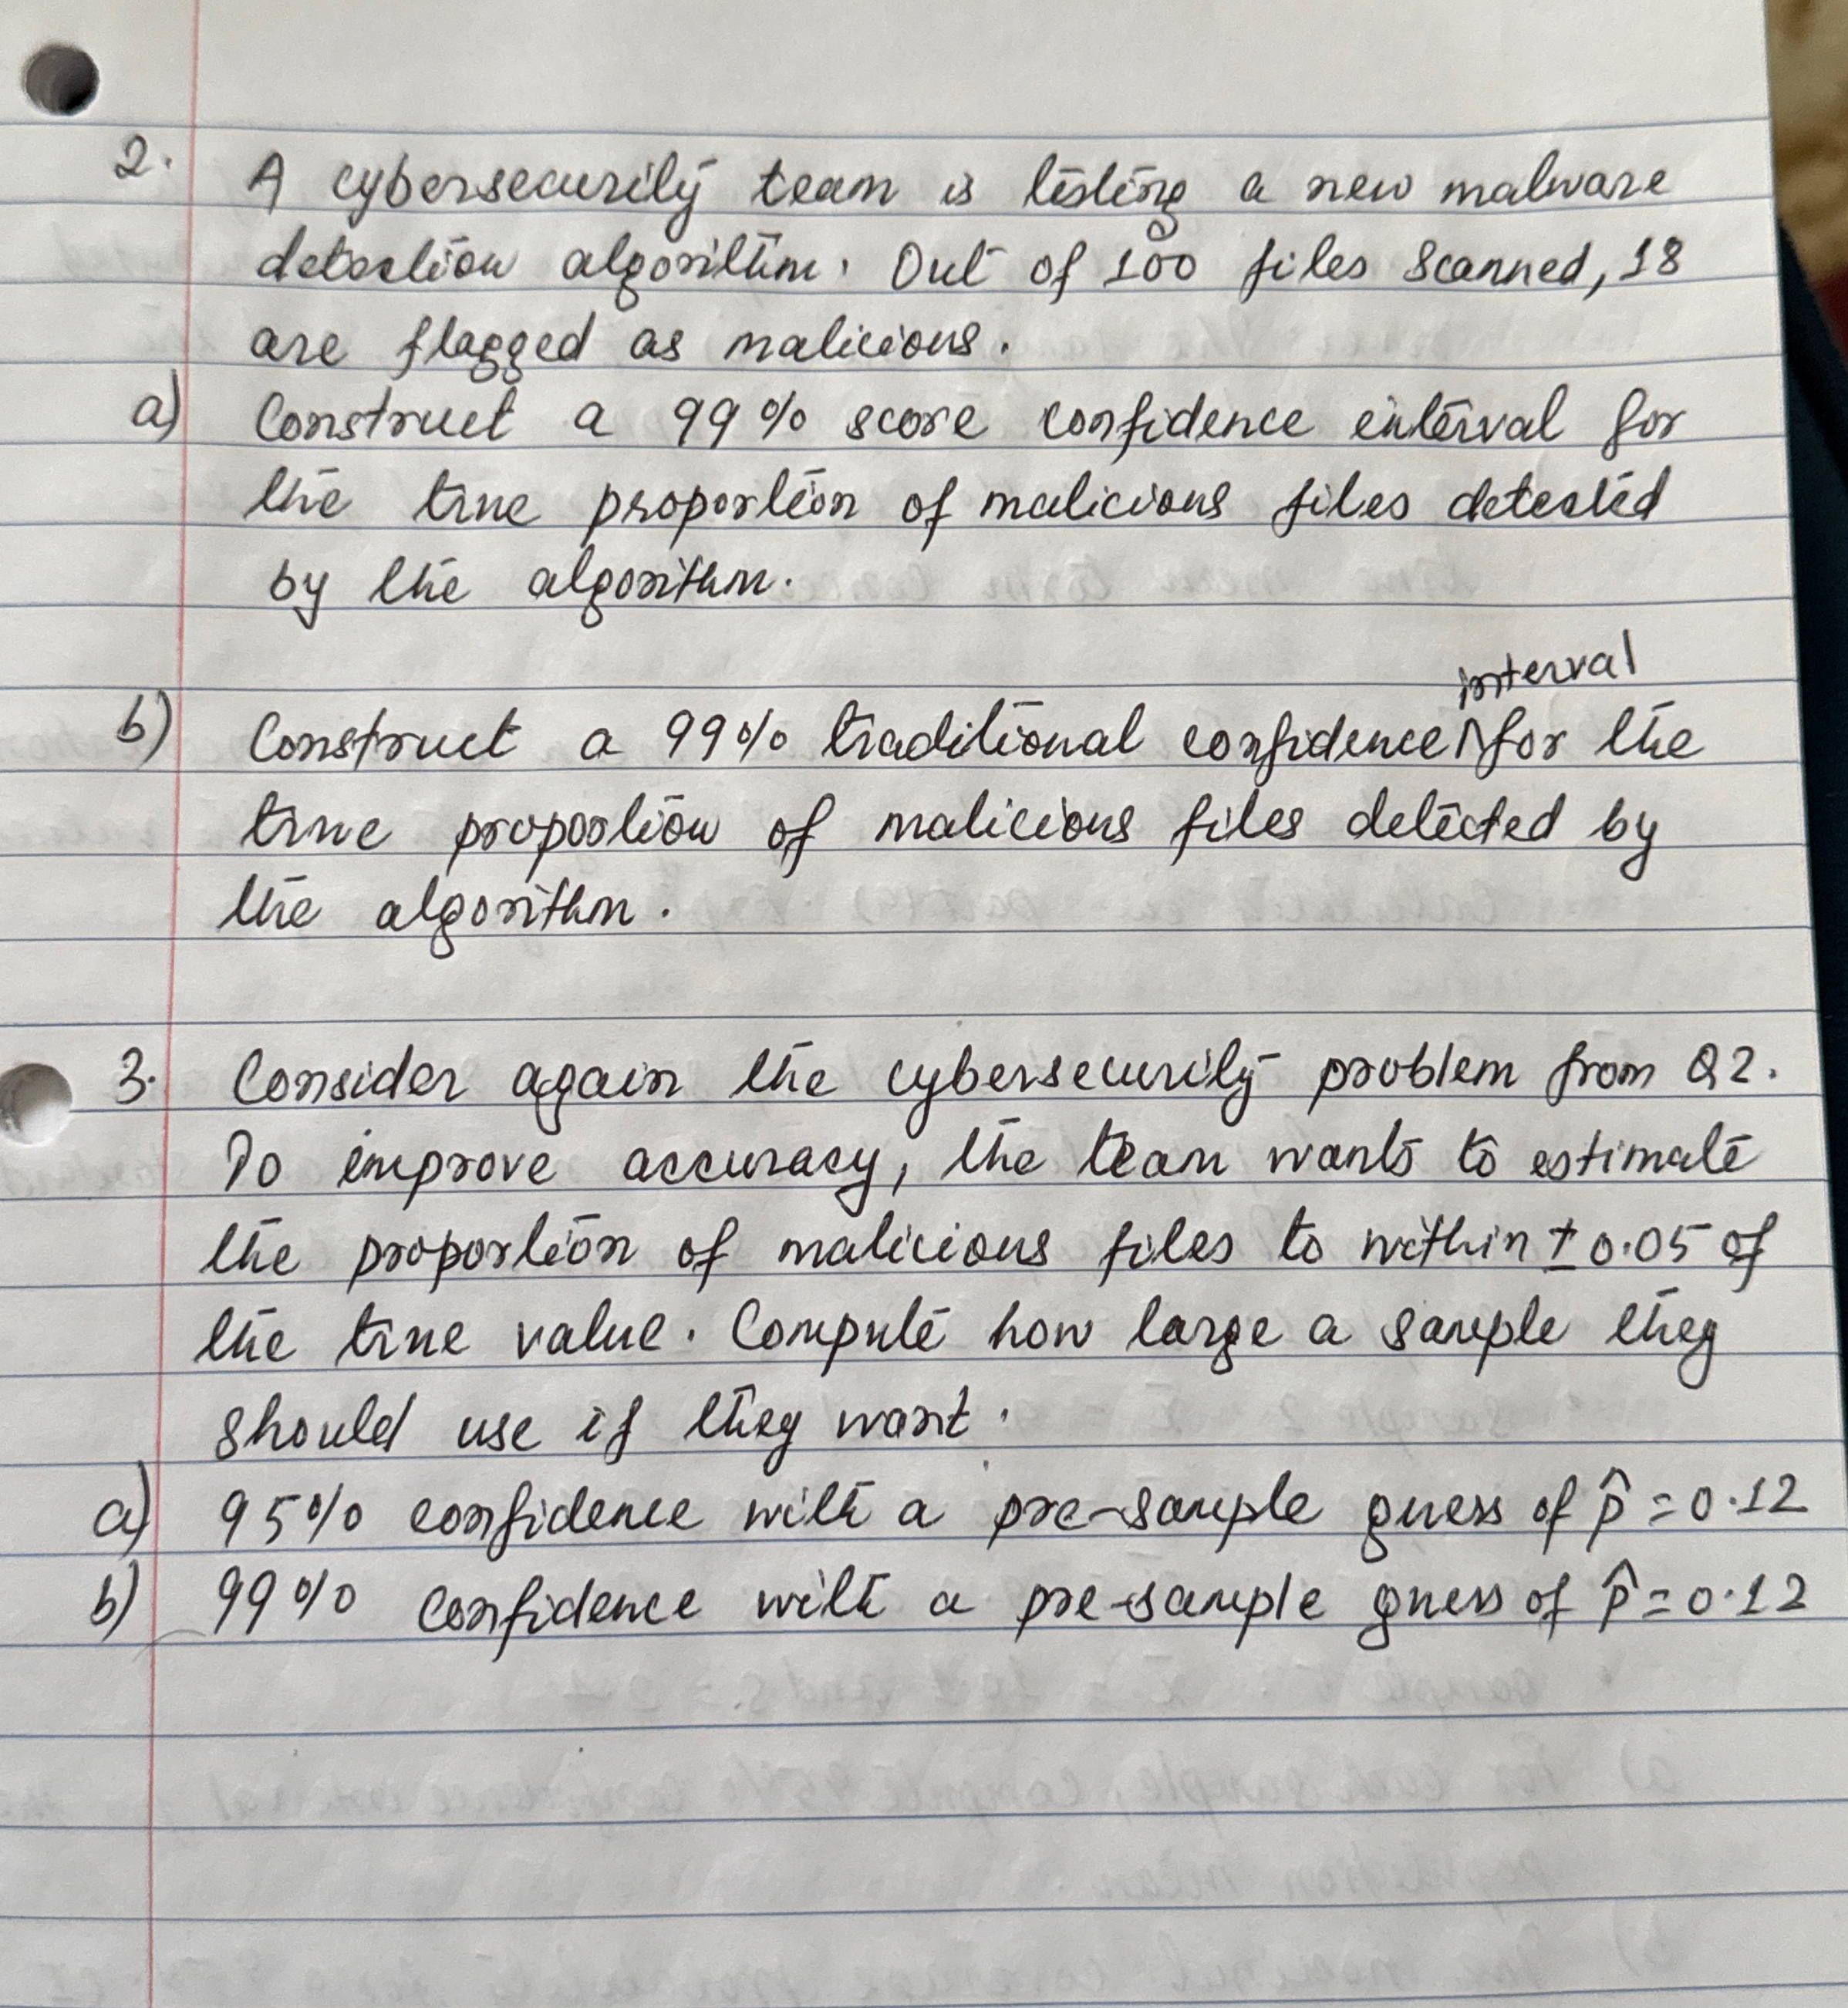 2. A cybersecurity team is testing a new malware
detection algorithm. Out of 100 files scanned, 18
are flagged as malicious.
a) Construct a 99% score confidence interval for
the true proportion of malicious files detected
by the algorithm.
interval
b) Construct a 99% traditional confidence ^ for the
true proportion of malicious files detected by
the algorithm.
3. Consider again the cybersecurity problem from Q2.
To improve accuracy, the team wants to estimate
the proportion of malicious files to within ± 0.05 of
the true value. Compute how large a sample they
should use if they want.
a) 95% confidence with a pre-sample guess of p̂ = 0.12
b) 99% confidence with a pre-sample guess of p̂ = 0.12